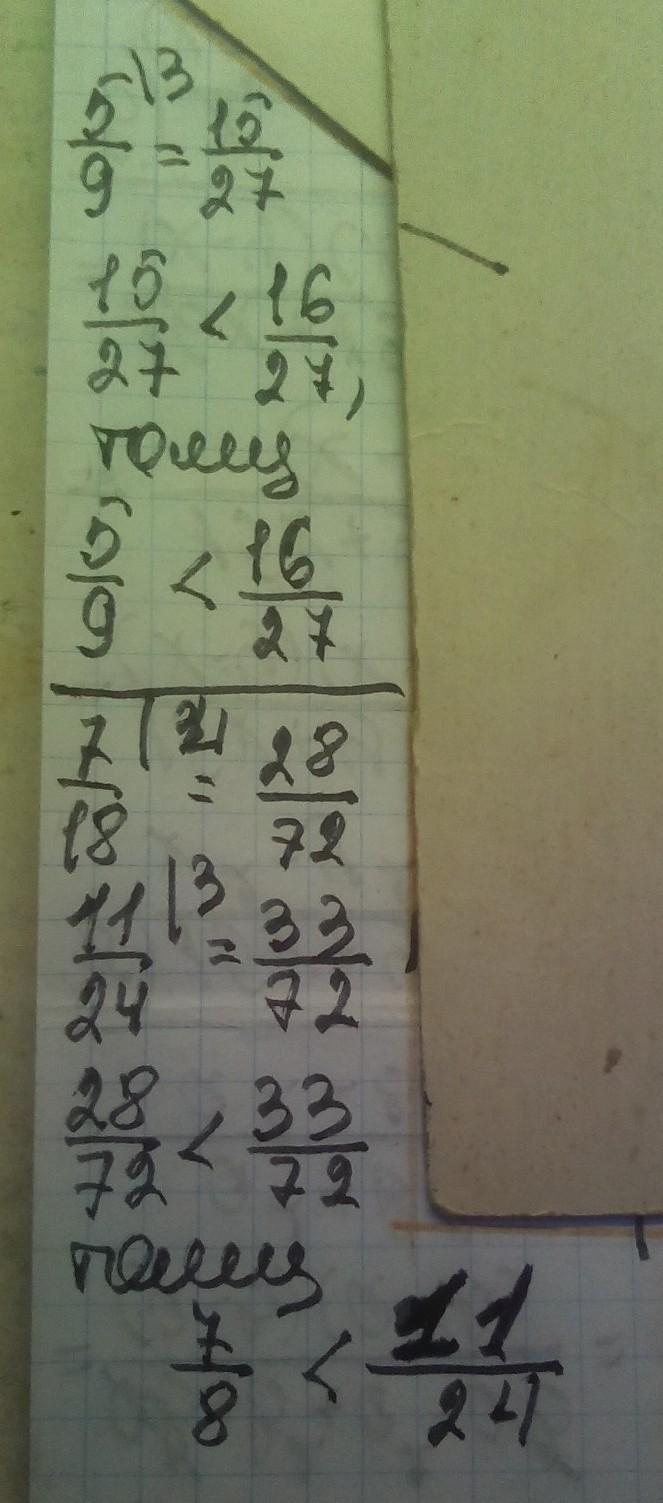 5/9 \3 = 15/27
15/27 < 16/27,
тому
5/9 < 16/27
7/18 \4 = 28/72
11/24 \3 = 33/72
28/72 < 33/72
тому
7/8 < 11/24